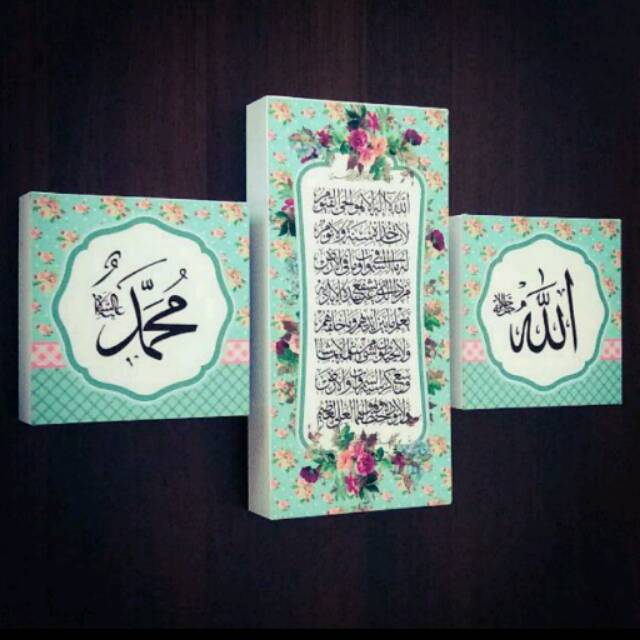 الله
جل جلاله
الله لا إله إلا هو الحي القيوم
لا تأخذه سنة ولا نوم
له ما في السموات وما في الأرض
من ذا الذي يشفع عنده إلا بإذنه
يعلم ما بين أيديهم وما خلفهم
ولا يحيطون بشيء من علمه إلا بما شاء
وسع كرسيه السموات والأرض
ولا يؤوده حفظهما وهو العلي العظيم
محمد